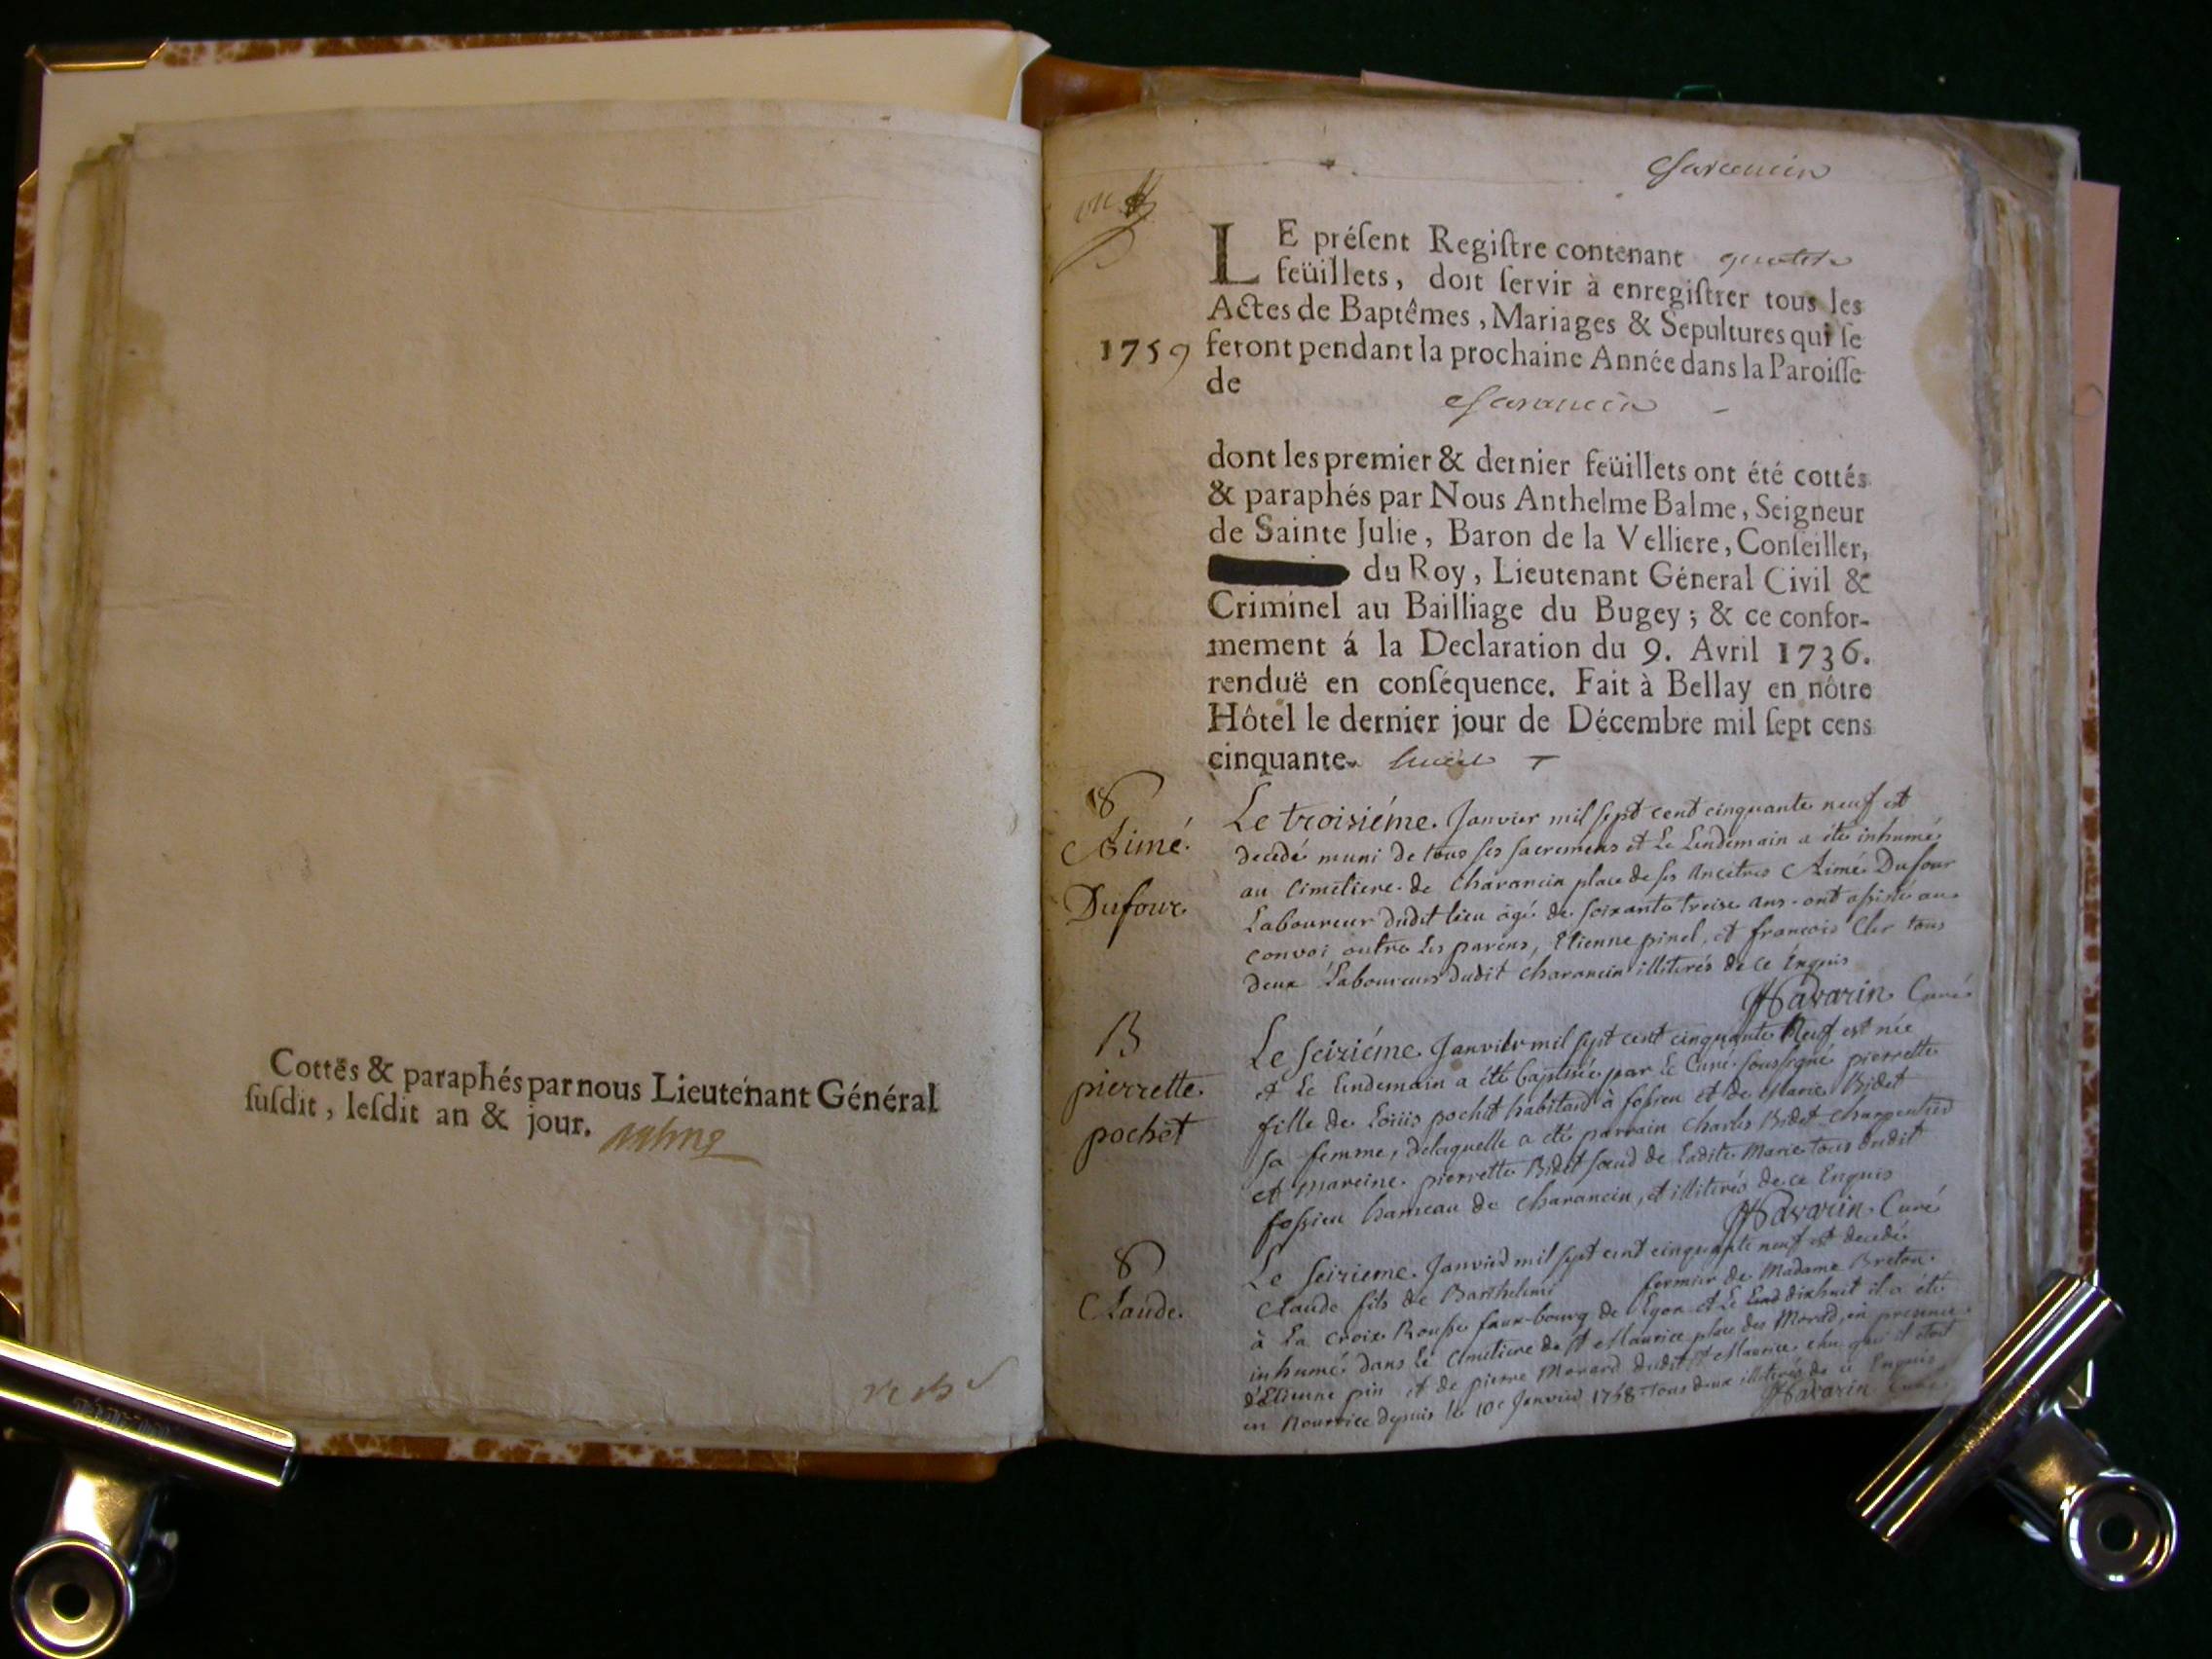 Cottés & paraphés par nous Lieutenant Général
susdit, lesdit an & jour.
Charancin
LE présent Registre contenant quatre
feüillets, doit servir à enregistrer tous les
Actes de Baptêmes, Mariages & Sepultures qui se
1759 feront pendant la prochaine Année dans la Paroisse
de
Charancin
dont les premier & dernier feüillets ont été cottés
& paraphés par Nous Anthelme Balme, Seigneur
de Sainte Julie, Baron de la Velliere, Conseiller,
du Roy, Lieutenant Géneral Civil &
Criminel au Bailliage du Bugey; & ce confor-
mement á la Declaration du 9. Avril 1736.
renduë en conséquence. Fait à Bellay en nôtre
Hôtel le dernier jour de Décembre mil sept cens
cinquante huit
S
Aimé
Dufour
Le troisiéme Janvier mil sept cent cinquante neuf est
decedé muni de tous ses sacremens et Le Lendemain a été inhumé
au Cimetiere de Charancin place de ses Ancètres Aimé Dufour
Laboureur dudit lieu âgé de soixante treise ans. ont assisté au
convoi outre Les parens, Etienne pinel, et françois Cler tous
deux Laboureurs dudit Charancin illiterés de ce Enquis
Havarin Curé
B
pierrette
pochet
Le seiziéme Janvier mil sept cent cinquante Neuf est née
et Le Lendemain a été baptisée par Le Curé soussigné pierrette
fille de Loüis pochet habitant à fossieu et de Marie Bidet
sa femme, delaquelle a été parrain Charles Bidet charpentier
et mareine pierrette Bidet soeud de Ladite Marie tous dudit
fossieu hameau de Charancin, et illiterés de ce Enquis
Havarin Curé
S
Claude
Le seizieme Janvied mil sept cent cinquante neuf est decedé
Claude fils de Barthelemi fermier de Madame Breton
à La croix Rousse faux-bourg de Lyon et Le dixhuit il a été
inhumé dans Le Cimetiere de St Maurice place des Morard, en presence
d'Etienne pin et de pierre Morard dudit St Maurice chu qui il étoit
en Nourrice depuis le 10e Janvied 1758 tous deux illiterés de ce Enquis
Havarin Curé